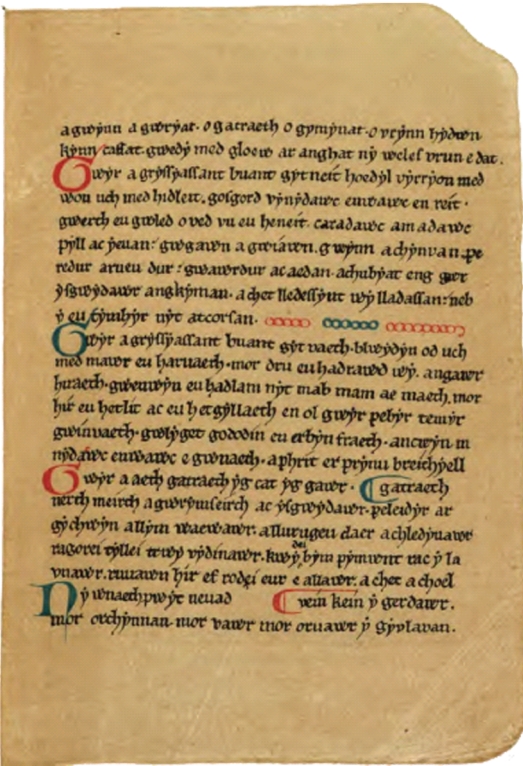 agỽynn a gỽryat. o gatraeth o gymynat. o vrynn hydỽn
kynn caffat. gỽedy med gloeỽ ar anghat ny weles vrun e dat.
Gỽyr a gryssyassant buant gytneit hoedyl vyrryon med
ỽon uch med hidleit. gosgord vynydaỽc enỽaỽc en reit.
gỽerth eu gỽled o ved vu eu heneit. caradaỽc a madaỽc
pyll ac yeuan. gỽgaỽn a gỽiaỽn. gỽynn a chynvan. pe
redur arueu dur. gỽaỽrdur ac aedan. achubyat eng gaỽr
ysgỽydaỽr angkyman. a chet lledessynt ỽy lladassan. neb
y eu tymhyr nyt atcorsan.
Gỽyr a gryssyassant buant gyt vaeth. blỽydyn od uch
med maỽr eu haruaeth. mor dru eu hadraỽd ỽy. angaỽr
hiraeth. gỽenỽyn eu hadlam nyt mab mam ae maeth. mor
hir eu hetlit ac eu hetgyllaeth en ol gỽyr pebyr temyr
gỽinvaeth. gỽlyget gododin eu erbyn fraeth. ancỽyn m
nydaỽc enỽaỽc e gỽnaeth. a phrit er prynu breithyell
Gỽyr a aeth gatraeth yg cat yg gaỽr. gatraeth
nerth meirch a gỽrymseirch ac ysgỽydaỽr. peleidyr ar
gychỽyn a llym ỽaeỽaỽr. a llurugeu claer a chledyuaỽr
ragorei tyllei trỽy vydinaỽr. kỽydei bym pymỽnt rac y la
vnaỽr. ruuaỽn hir ef rodei eur e allaỽr. a chet a choel
Ny ỽnaethpỽyt neuad vein kein y gerdaỽr.
mor orchynnan. mor vaỽr mor oruaỽr y gyvlavan.